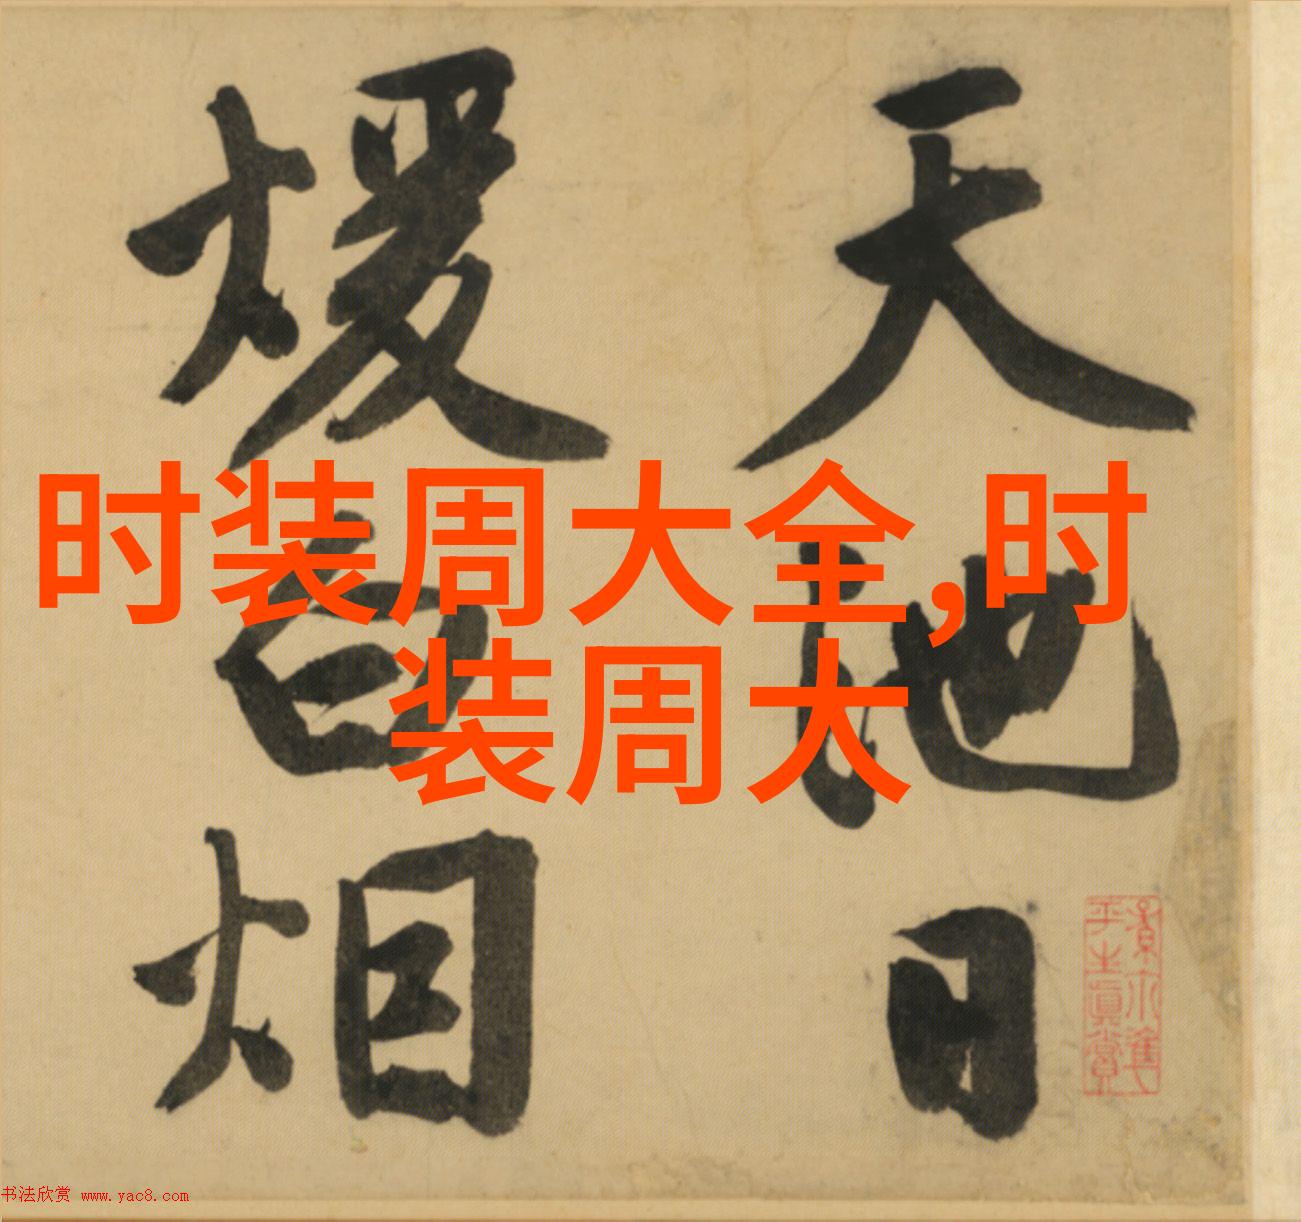 天池日
煖白烟
时装周大全,时
装周大
平生真賞
书法欣赏 www.yac8.com